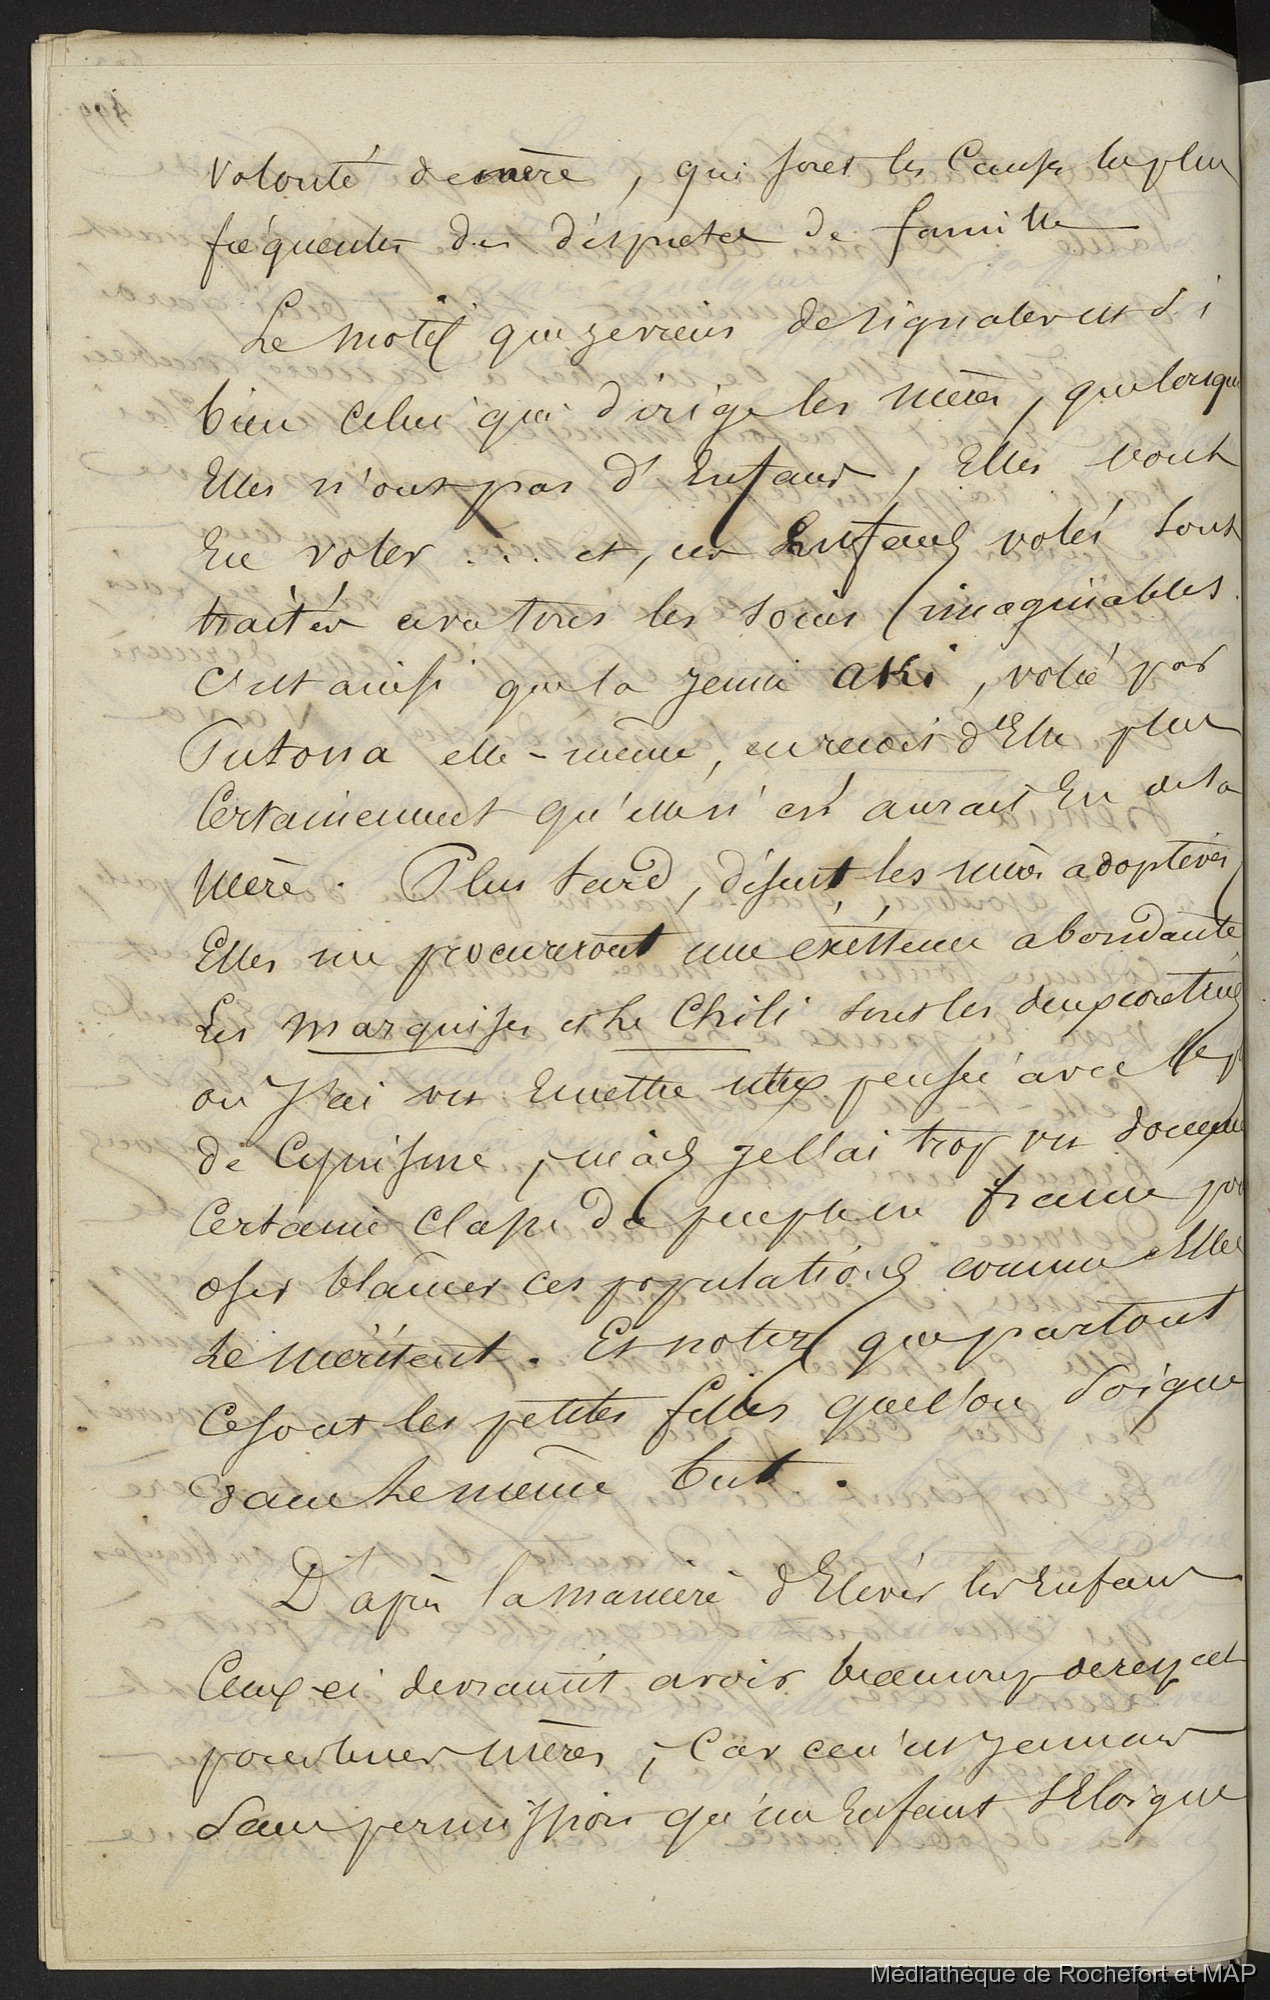 volonté de mère, qui sont les causes les plus
fréquentes des disputes de famille
Le motif que je viens de signaler est si
bien celui qui dirige les mères, que lorsque
Elles n'ont pas d'Enfans, Elles vont
En voler ... et, ces Enfans volés sont
traités avec tous les soins imaginables.
C'est ainsi que la jeune Aki, volée par
Putona elle-même, en reçois d'Elle plus
Certainement qu'elle n'en aurait Eu de sa
mère. Plus tard, disent les mères adoptives,
Elles me procureront une existence abondante
Les marquises et le Chili sont les deux contrées
où J'ai vu Emettre cette pensée avec le p
de Cynisme, mais je l'ai trop vu
Certaine classe du peuple en france po
oser blâmer ces populations comme Elles
le méritent. Et notez que partout
ce sont les petites filles que l'on soigne
dans le même but.
D'après la manière d'Elever les Enfans
Ceux-ci devraient avoir beaucoup de respect
pour leurs mères, car ce n'est jamais
sans permission qu'un Enfant s'Eloigne
Médiathèque de Rochefort et MAP